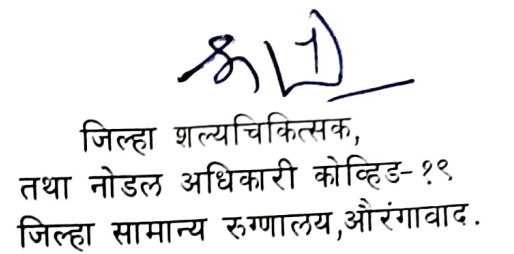 जिल्हा शल्यचिकित्सक,
तथा नोडल अधिकारी कोव्हिड-१९
जिल्हा सामान्य रुग्णालय,औरंगाबाद.